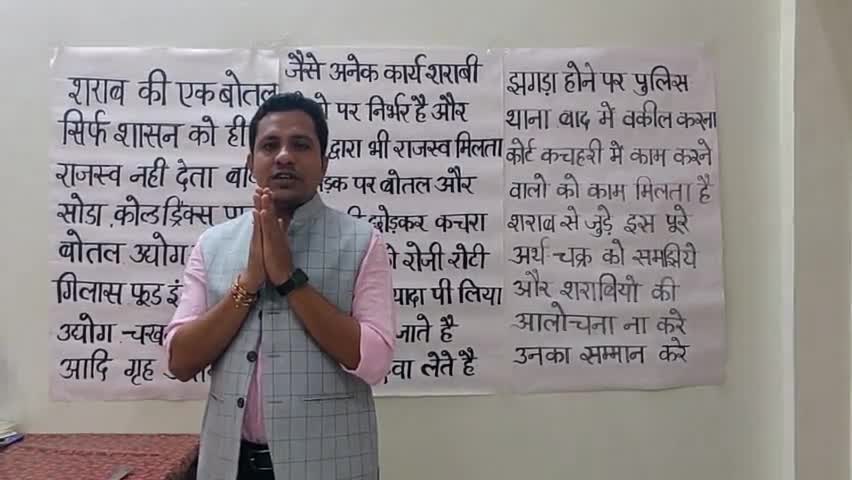 शराब की एक बोतल
सिर्फ शासन को ही
राजस्व नही देता
सोडा कोल्ड्रिंक्स
बोतल उद्योग
गिलास फूड
उद्योग
आदि गृह
जैसे अनेक कार्य शराबी
पर निर्भर है और
द्वारा भी राजस्व मिलता
पर बोतल और
छोड़कर कचरा
रोजी रोटी
पी लिया
जाते है
लेते है
झगड़ा होने पर पुलिस
थाना बाद में वकील करना
कोर्ट कचहरी में काम करने
वालो को काम मिलता है
शराब से जुड़े इस पूरे
अर्थ-चक्र को समझिये
और शराबियो की
आलोचना ना करे
उनका सम्मान करे